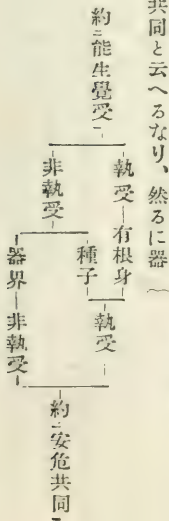 共同と云へるなり、然るに器
約ニ能生覺受ニ
執受―有根身
非執受
種子
執受
器界―非執受
約ニ安危共同ニ